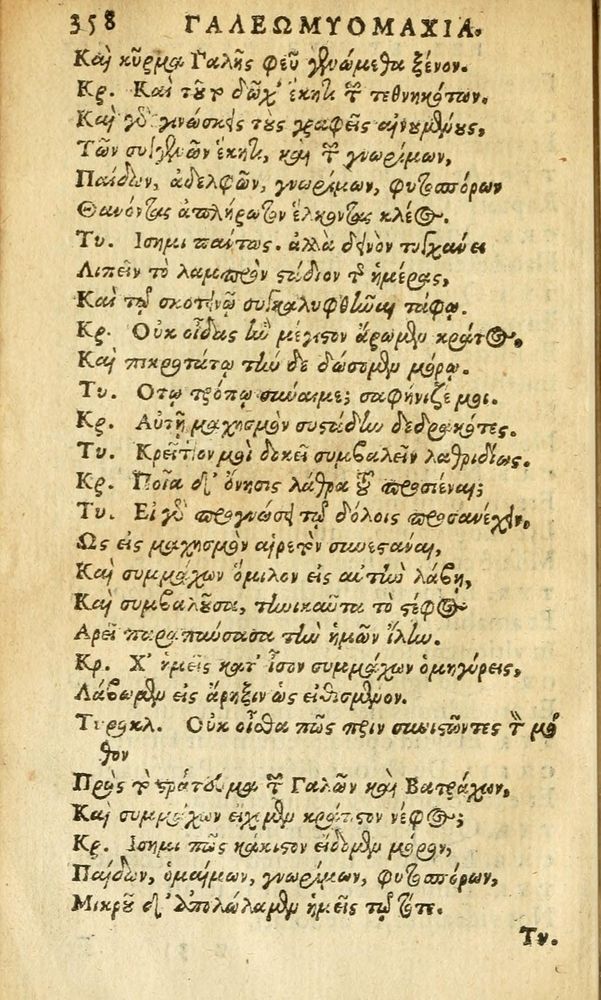 358 ΓΑΛΕΩΜΥΟΜΑΧΙΑ.
Καὶ κῦρμα Γαλῆς φεῦ γενώμεθα ξένον.
Κρ. Καὶ τοῦτο δῶχ' ἕκητι τῶν τεθνηκότων.
Καὶ γὸ γινώσκεις τοὺς γραφεῖς αἰνουμένους,
Τῶν συγγενῶν ἕκητι, καὶ τῶν γνωρίμων,
Παίδων, ἀδελφῶν, γνωρίμων, φυτοσπόρων
Θανόντας ἀπλήρωτον ἕλκοντας κλέος.
Τυ. Ισημι πάντως. ἀλλὰ δεινὸν τυγχάνει
Λιπεῖν τὸ λαμπρὸν στάδιον τῆς ἡμέρας,
Καὶ τῷ σκοτεινῷ συγκαλυφθῆναι τάφῳ.
Κρ. Οὐκ οἶδας ἣν μέγιστον ἄρωμεν κράτος.
Καὶ πικροτάτῳ τήνδε δώσομεν μόρῳ.
Τυ. Οτῳ τρόπῳ σύναιμε; σαφήνιζέ μοι.
Κρ. Αὐτῇ μαχησμὸν συστάδην δεδρακότες.
Τυ. Κρεῖττον μοὶ δοκεῖ συμβαλεῖν λαθριδίως.
Κρ. Ποία δ' ὄνησις λάθρα τοῦ προσιέναι;
Τυ. Εἰ γὸ προγνώσει τῷ δόλοις προσανέχειν,
Ως εἰς μαχησμὸν αἱρετὸν συνεστάναι,
Καὶ συμμάχων ὅμιλον εἰς αὐτὴν λάβῃ,
Καὶ συμβαλοῦσα, τηνικαῦτα τὸ στέφος
Αρεῖ παραπαύσασα τὴν ἡμῶν ἴλην.
Κρ. Χ' ἡμεῖς κατ' ἶσον συμμάχων ὁμηγύρεις,
Λάβωμεν εἰς ἄρηξιν ὡς εἰθισμένον.
Τυροκλ. Οὐκ οἶσθα πῶς πριν συνιστῶντες τὸν μό
θον
Πρὸς τὸ στράτευμα τῶν Γαλῶν καὶ Βατράχων,
Καὶ συμμάχων εἴχομεν κράτιστον νέφος;
Κρ. Ισημι πῶς κάκιστον εἴδομεν μόρον,
Παίδων, ὁμαίμων, γνωρίμων, φυτοσπόρων,
Μικροῦ δ' ἀπολώλαμεν ἡμεῖς τῷ τότε.
Τυ.